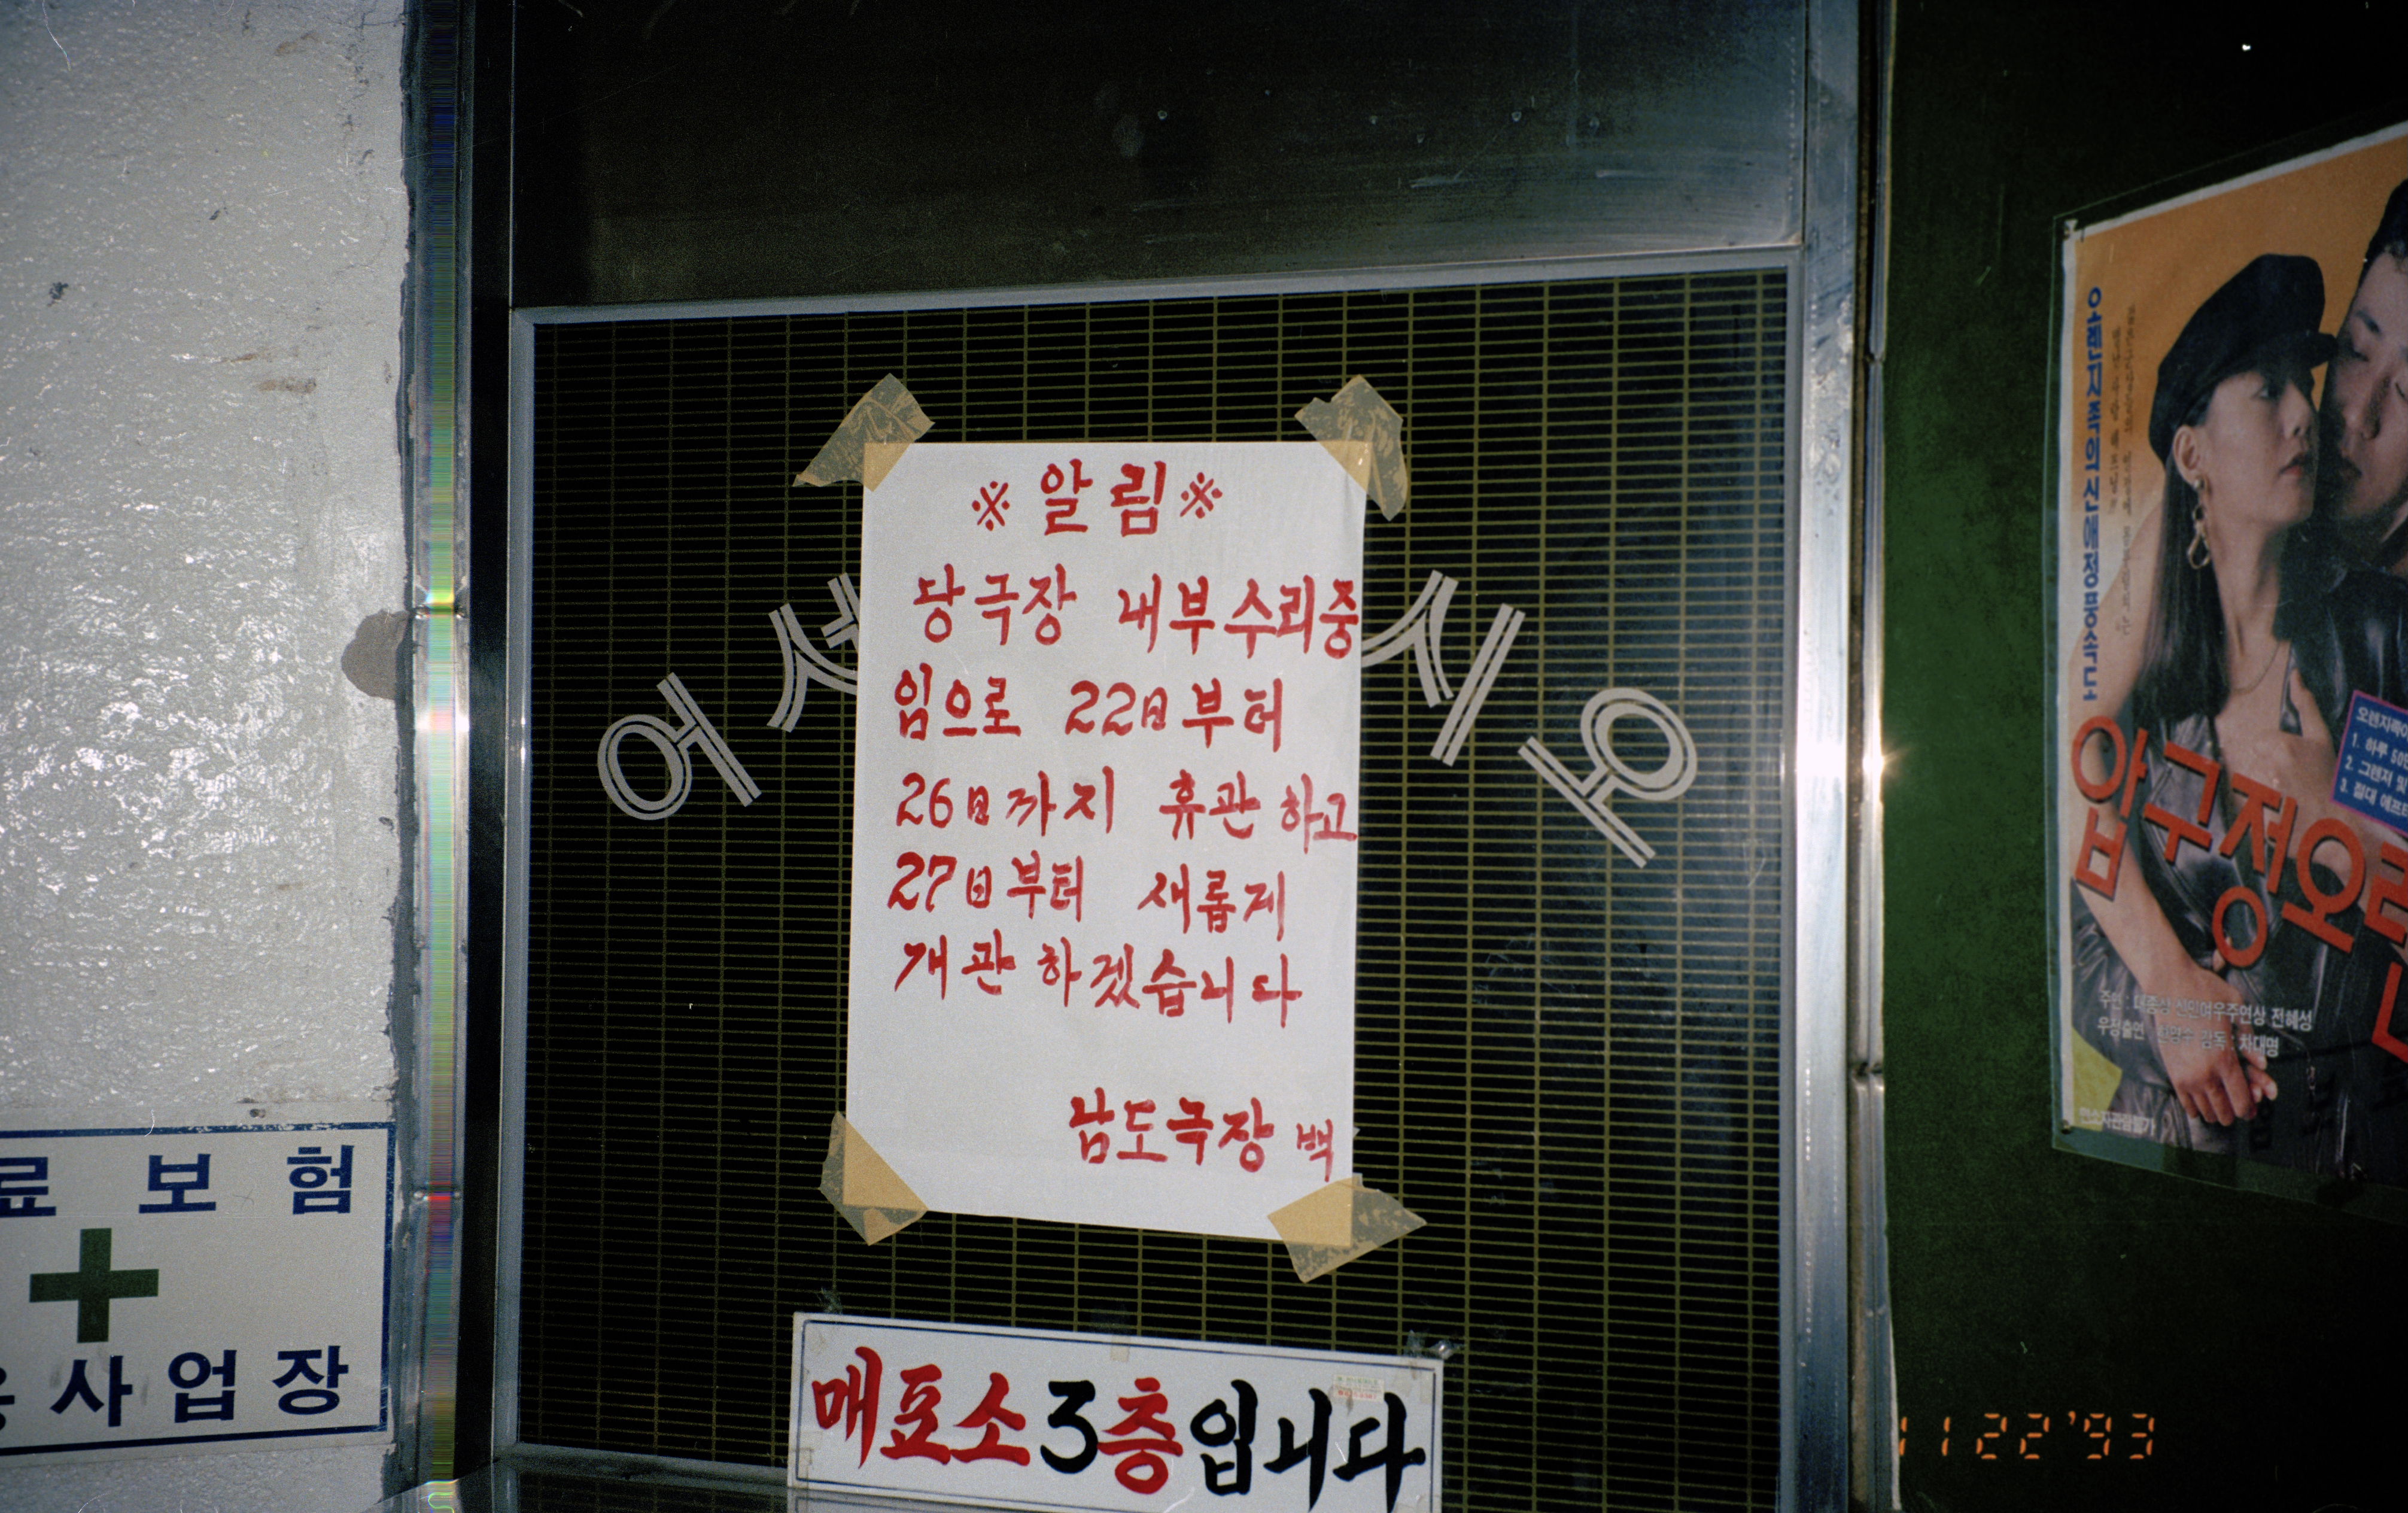 ※ 알림 ※
당극장 내부수리중
임으로 22日부터
26日까지 휴관하고
27日부터 새롭게
개관하겠습니다
남도극장 백
어서
시오
매표소3층입니다
료보험
사업장
압구정오
오렌지족의 신풍정풍속도
주연 : 대종상 신인여우주연상 전혜성
감독 : 차대명
1. 하루
2. 그랜저
3. 절대
11 22 '93